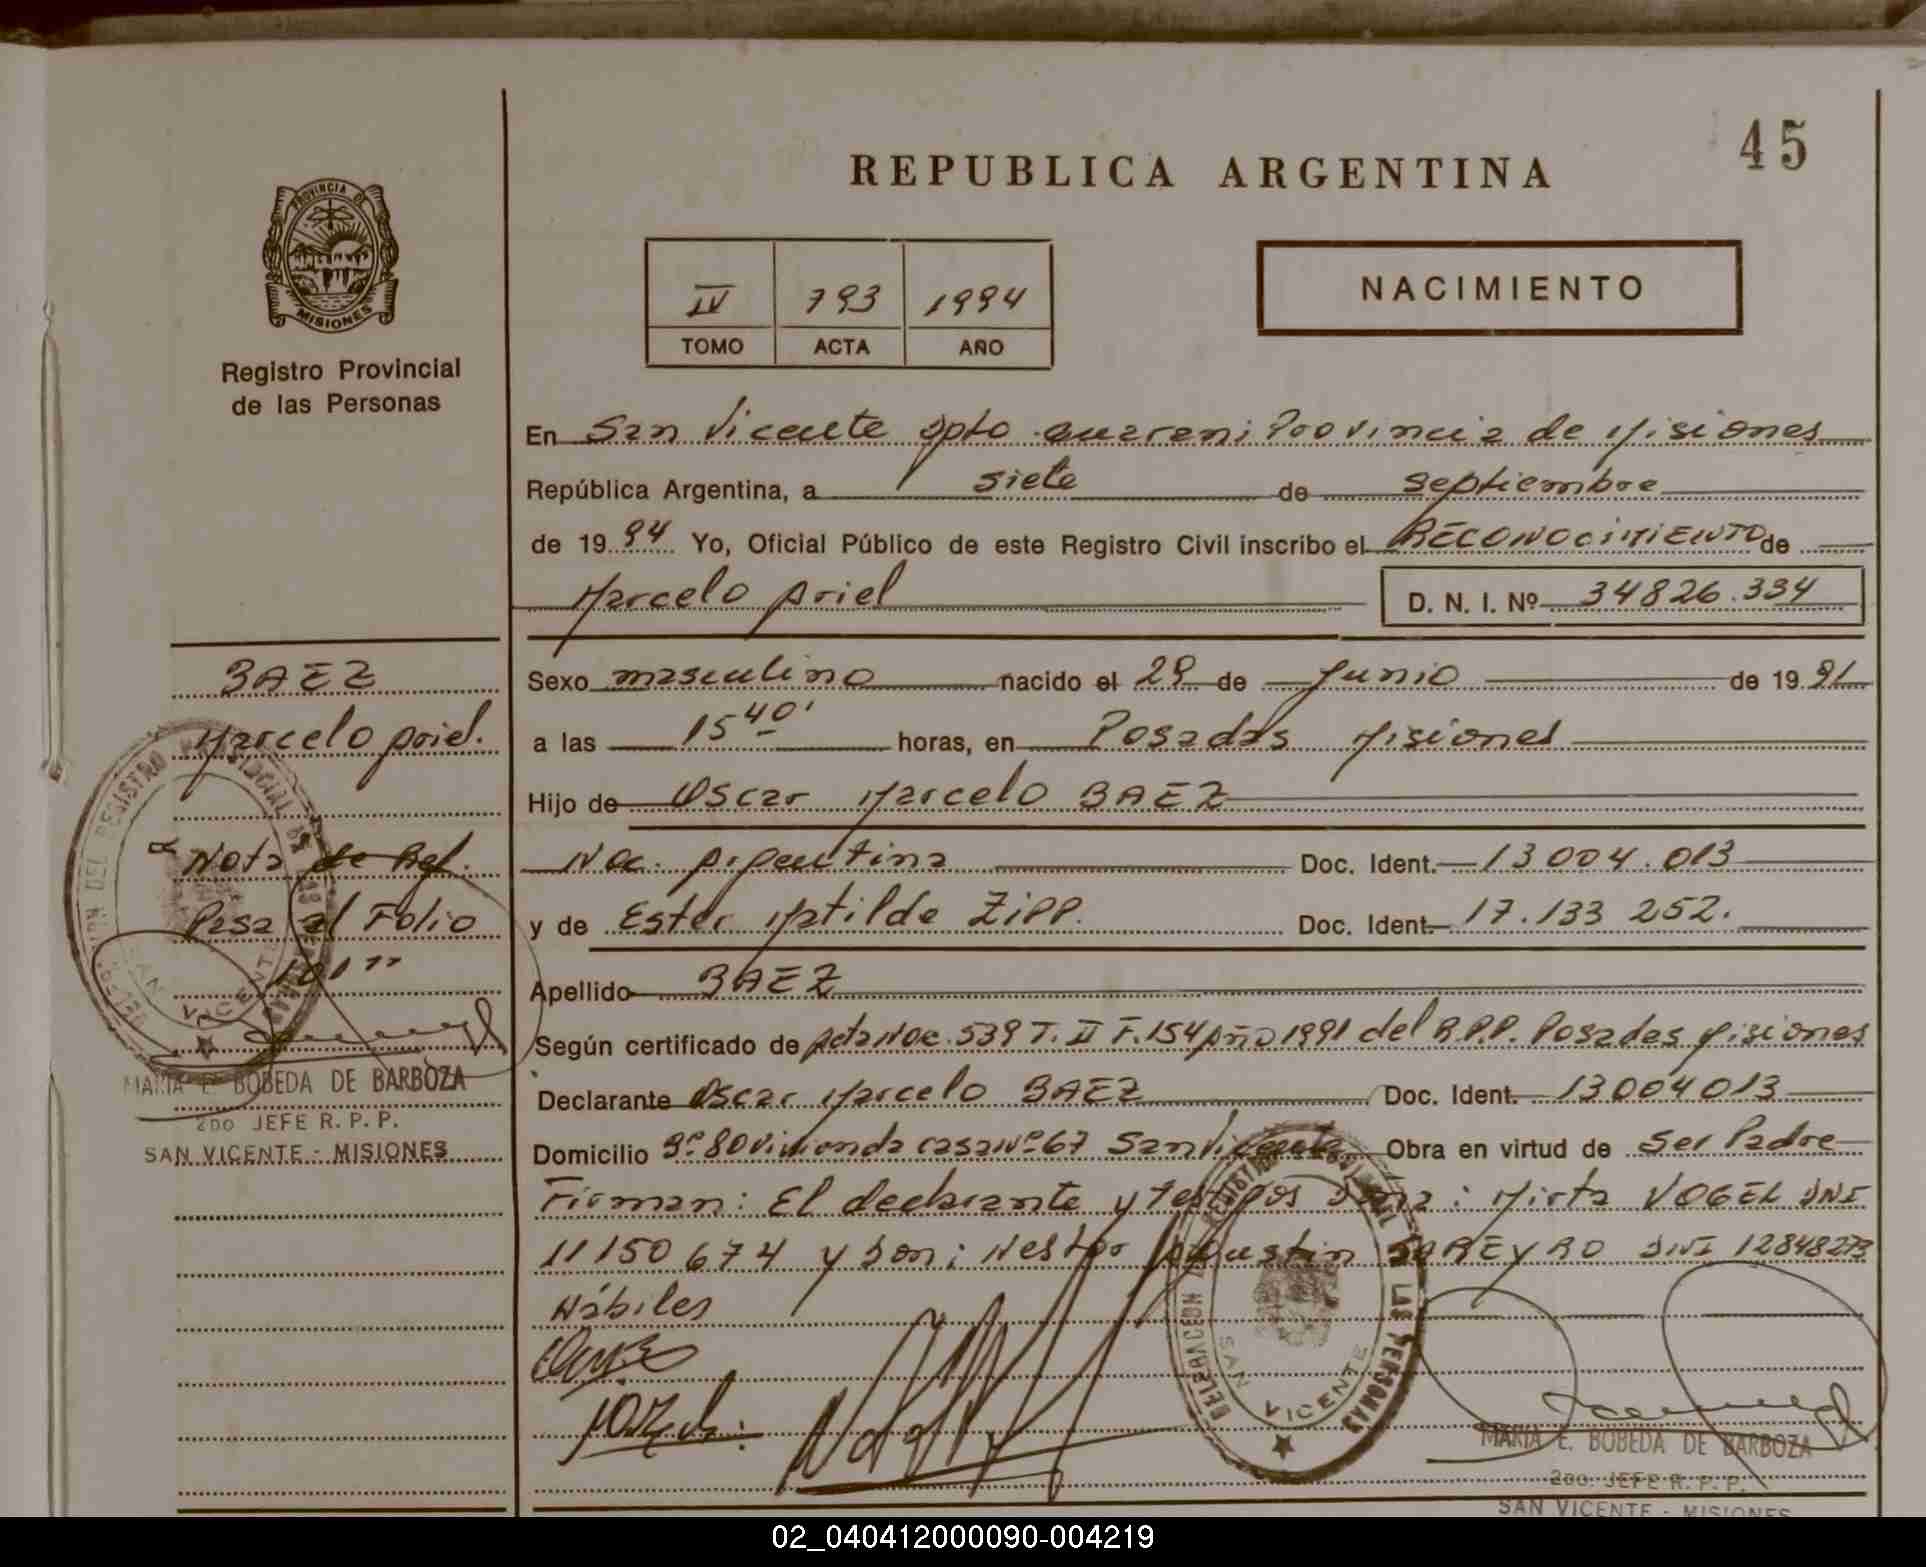 45
REPUBLICA ARGENTINA
PROVINCIA DE
MISIONES
Registro Provincial
de las Personas
IV 793 1994
TOMO ACTA AÑO
NACIMIENTO
En San Vicente Dpto. Guarani Provincia de Misiones
República Argentina, a siete de septiembre
de 19 94 Yo, Oficial Público de este Registro Civil inscribo el RECONOCIMIENTO de
Marcelo Ariel D. N. I. Nº 34826.334
Sexo masculino nacido el 29 de Junio de 19 91
a las 15 40' horas, en Posadas Misiones
Hijo de Oscar Marcelo BAEZ
Nac. Argentina Doc. Ident. 13 004.013
y de Ester Matilde ZIPP. Doc. Ident. 17.133 252.
Apellido BAEZ
Según certificado de Acta Nac. 539 T. II F. 154 Año 1991 del R.P.P. Posadas Misiones
Declarante Oscar Marcelo BAEZ Doc. Ident. 13004013
Domicilio Bº 80 Vivienda casa Nº 67 San Vicente Obra en virtud de Ser Padre
Firman: El declarante y testigos Doña: Mirta VOGEL DNI
11150674 y Don: Nestor Agustin BAREYRO DNI 12848273
Hábiles
BAEZ
Marcelo Ariel.
Nota de Ref.
Pasa al Folio
DELEGACION DEL REGISTRO PROVINCIAL DE LAS PERSONAS
SAN VICENTE
MARIA E. BOBEDA DE BARBOZA
2DO JEFE R. P. P.
SAN VICENTE - MISIONES
DELEGACION DEL REGISTRO PROVINCIAL DE LAS PERSONAS
SAN VICENTE
MARIA E. BOBEDA DE BARBOZA
2DO. JEFE R. P. P.
SAN VICENTE - MISIONES
02_040412000090-004219